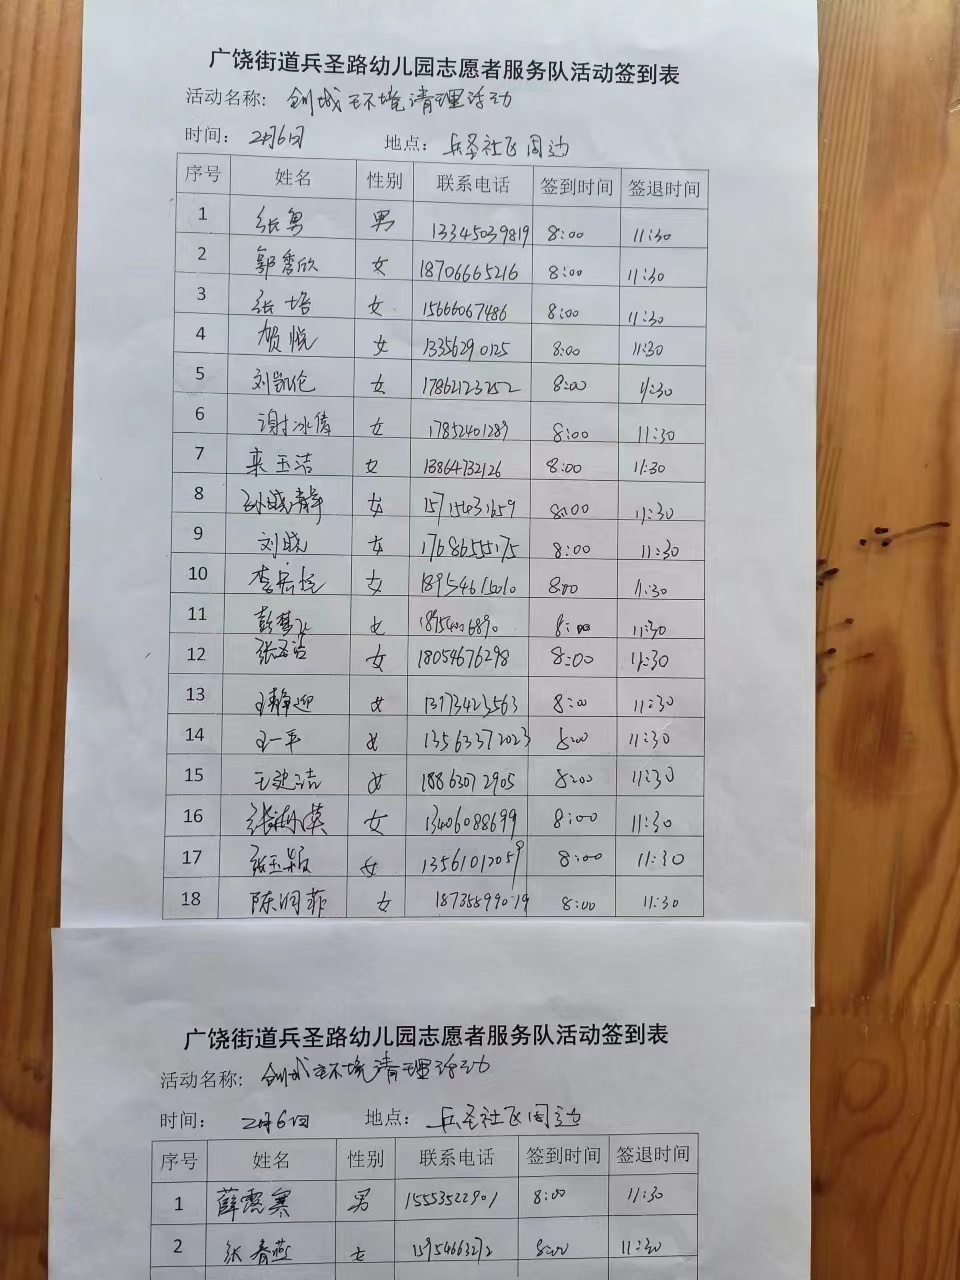 广饶街道兵圣路幼儿园志愿者服务队活动签到表
活动名称: 创城环境清理活动
时间: 2月6日 地点: 兵圣社区周边
序号 姓名 性别 联系电话 签到时间 签退时间
1 张勇 男 13345039819 8:00 11:30
2 郭秀欣 女 18706665216 8:00 11:30
3 张培 女 15666067486 8:00 11:30
4 贺悦 女 13356290125 8:00 11:30
5 刘凯伦 女 17862123252 8:00 11:30
6 谢冰倩 女 17852401289 8:00 11:30
7 来玉洁 女 13864732126 8:00 11:30
8 孙晓静 女 15715431659 8:00 11:30
9 刘晓 女 17686555175 8:00 11:30
10 李 女 18954615010 8:00 11:30
11 彭梦 女 8:00 11:30
12 张玉洁 女 18054676298 8:00 11:30
13 王静迎 女 13173423563 8:00 11:30
14 王一平 女 13563372023 8:00 11:30
15 王建洁 女 18863072905 8:00 11:30
16 张海英 女 13406088699 8:00 11:30
17 张玉颖 女 13561012059 8:00 11:30
18 陈润菲 女 18735899019 8:00 11:30
广饶街道兵圣路幼儿园志愿者服务队活动签到表
活动名称: 创城环境清理活动
时间: 2月6日 地点: 兵圣社区周边
序号 姓名 性别 联系电话 签到时间 签退时间
1 薛露寒 男 15553522901 8:00 11:30
2 张春燕 女 15954663272 8:00 11:30